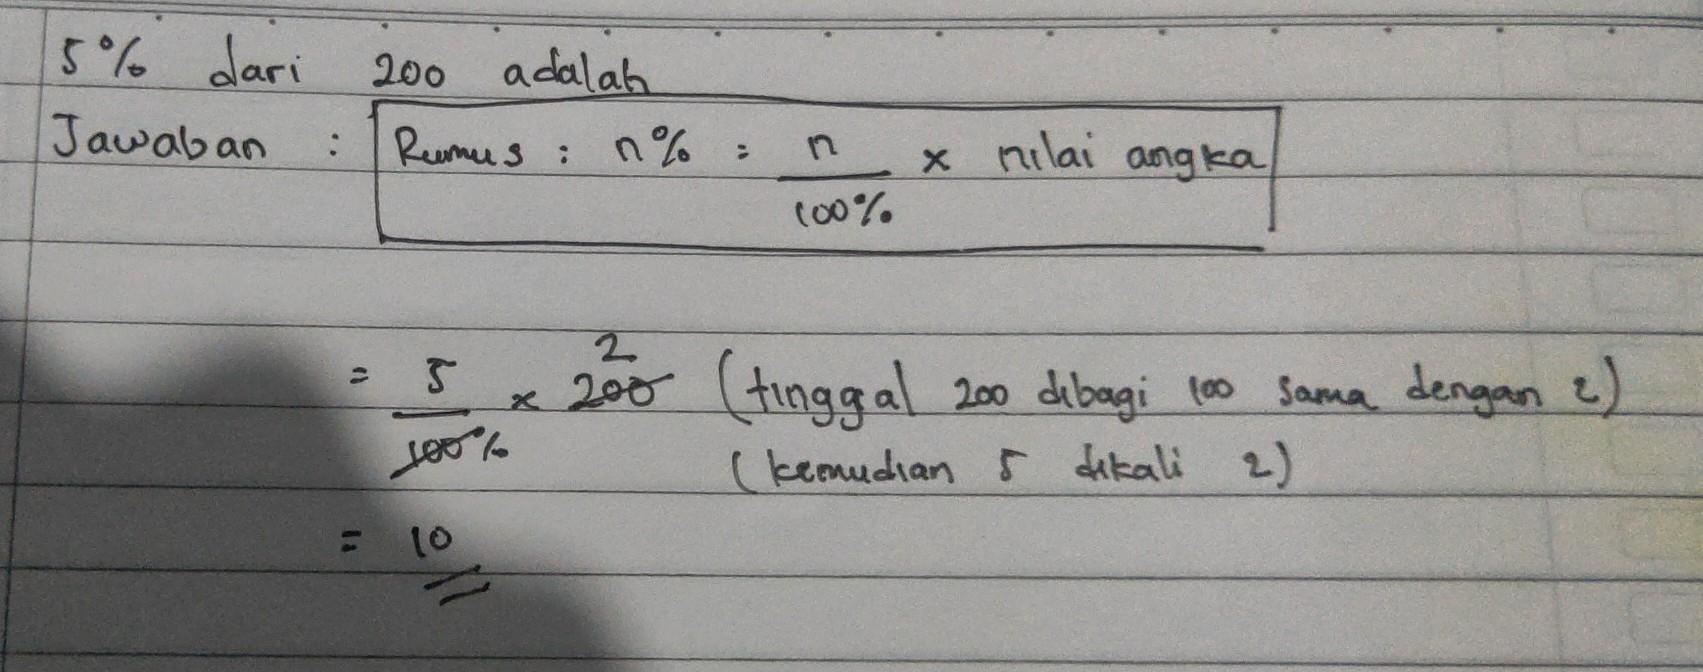 5% dari 200 adalah
Jawaban : Rumus : n% = n/100% x nilai angka
= 5/100% x 200 2 (tinggal 200 dibagi 100 sama dengan 2)
(kemudian 5 dikali 2)
= 10